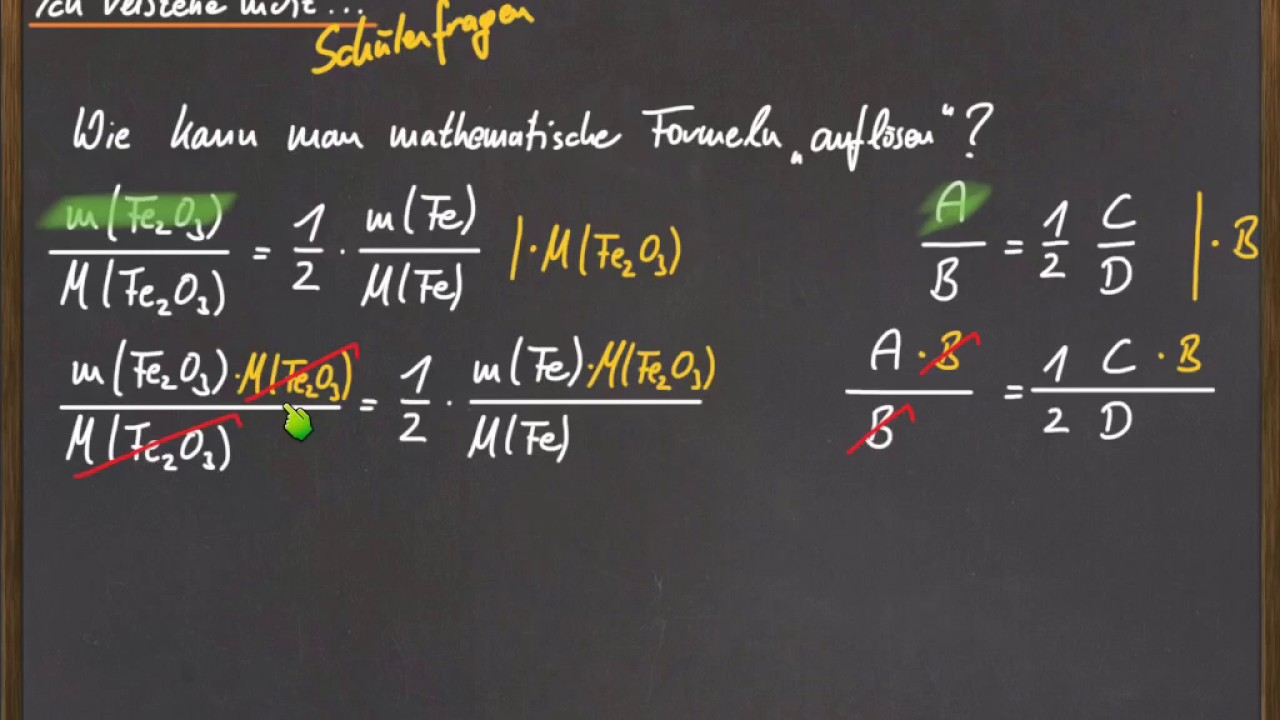 Ich verstehe nicht...
Schülerfragen
Wie kann man mathematische Formeln „auflösen“?
m(Fe₂O₃)/M(Fe₂O₃) = 1/2 · m(Fe)/M(Fe) | · M(Fe₂O₃)
A/B = 1/2 C/D | · B
m(Fe₂O₃) · M(Fe₂O₃)/M(Fe₂O₃) = 1/2 · m(Fe) · M(Fe₂O₃)/M(Fe)
A · B/B = 1 C · B/2 D